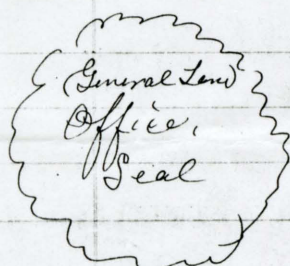 (General Land
Office,
Seal